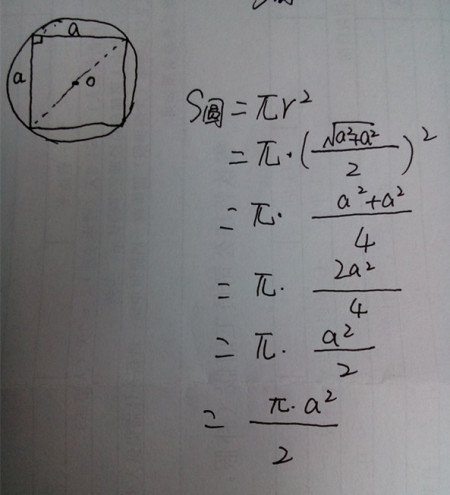 a
a
o
S圆=πr²
=π·(√(a²+a²)/2)²
=π·(a²+a²)/4
=π·2a²/4
=π·a²/2
=π·a²/2